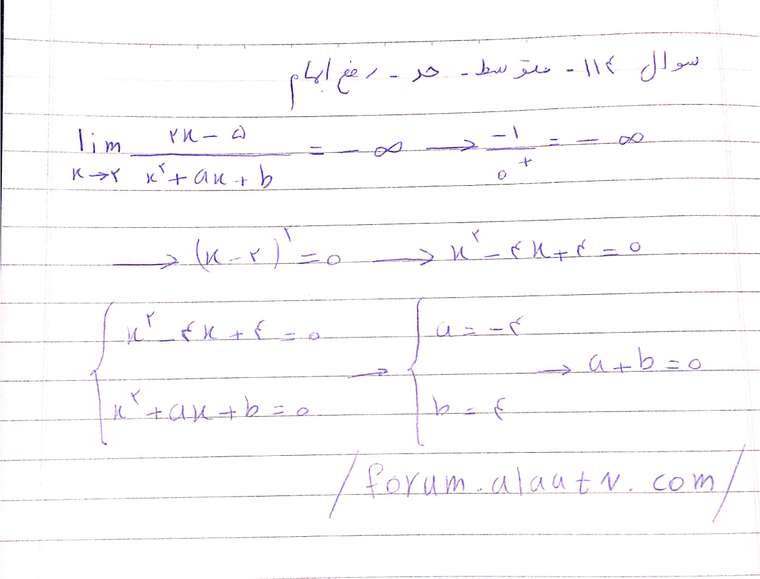 سوال ۱۱۴ - متوسط - حد - رفع ابهام
lim x→۲ (۲x - ۵)/(x^۲ + ax + b) = -∞ → -۱/۰^+ = -∞
→ (x-۲)^۲ = ۰ → x^۲ - ۴x + ۴ = ۰
{ x^۲ - ۴x + ۴ = ۰ → { a = -۴ → a + b = ۰
x^۲ + ax + b = ۰ b = ۴
/forum.alaatv.com/